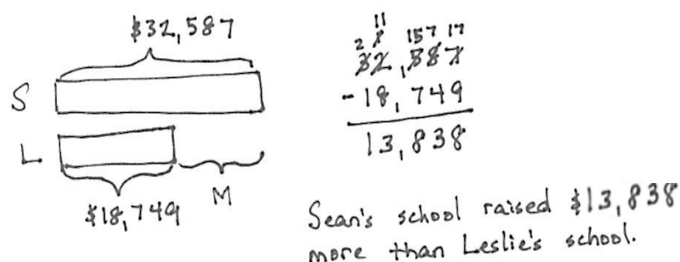 $32,587
S
L
M
$18,749
11
2 1 15 7 17
32,587
-18,749
13,838
Sean's school raised $13,838
more than Leslie's school.